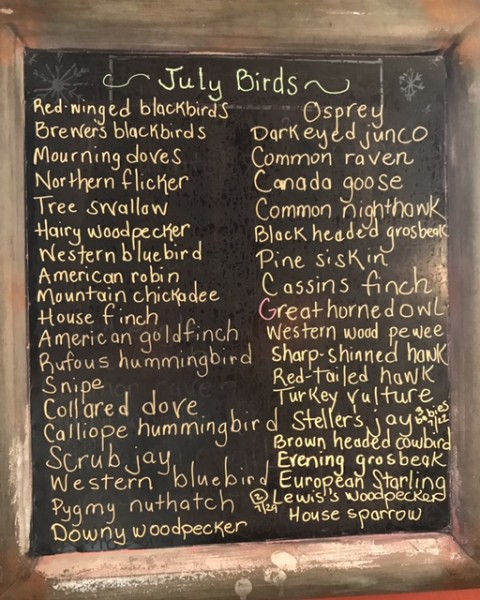 July Birds
Red-winged blackbirds
Brewers blackbirds
Mourning doves
Northern flicker
Tree swallow
Hairy woodpecker
Western bluebird
American robin
Mountain chickadee
House finch
American goldfinch
Rufous hummingbird
Snipe
Collared dove
Calliope hummingbird
Scrub jay
Western bluebird
Pygmy nuthatch
Downy woodpecker
Osprey
Dark eyed junco
Common raven
Canada goose
Common nighthawk
Black headed grosbeak
Pine siskin
Cassins finch
Great horned owl
Western wood pewee
Sharp-shinned hawk
Red-tailed hawk
Turkey vulture
Steller's jay 3 babies 7/22
Brown headed cowbird
Evening grosbeak
European Starling
② 7/29 Lewis's woodpecker
House sparrow